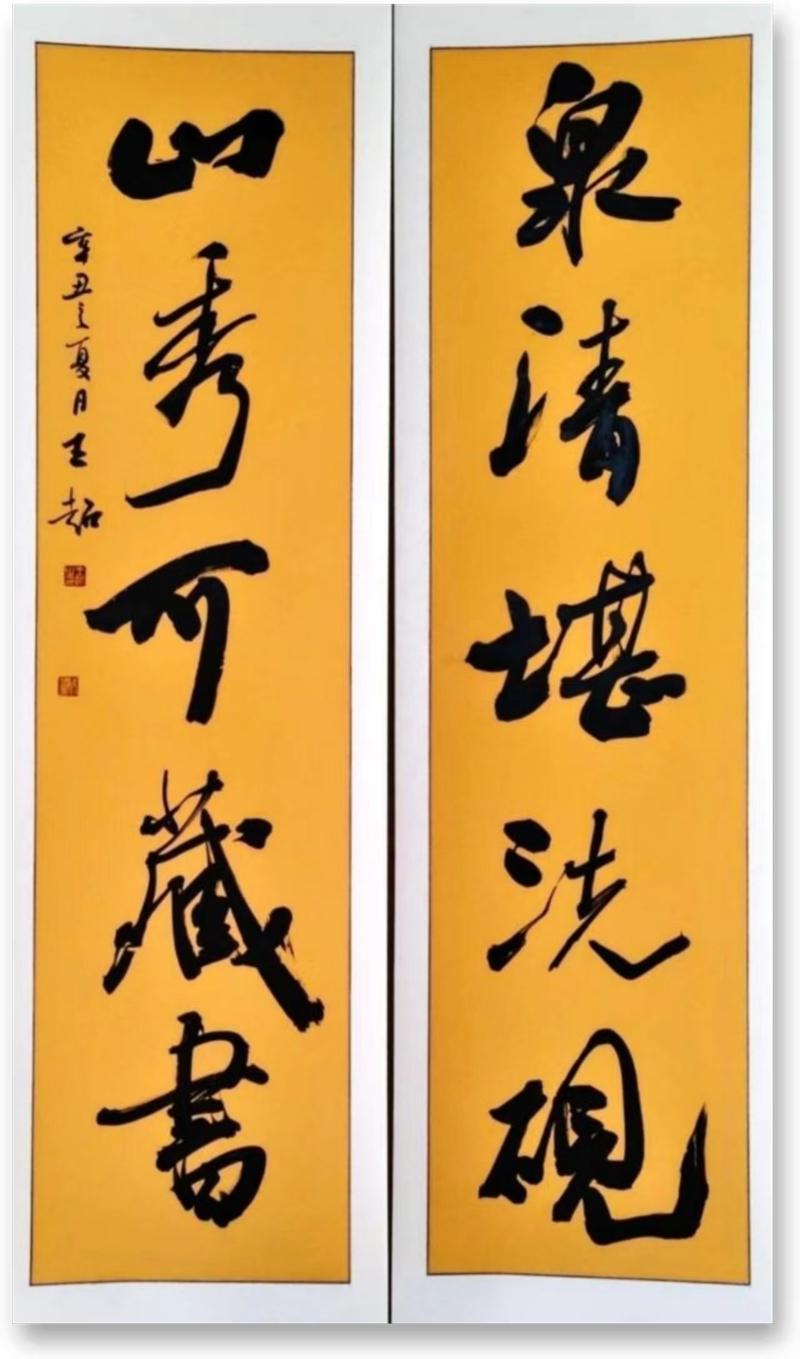 泉清堪洗砚
山秀可藏書
辛丑之夏月王超